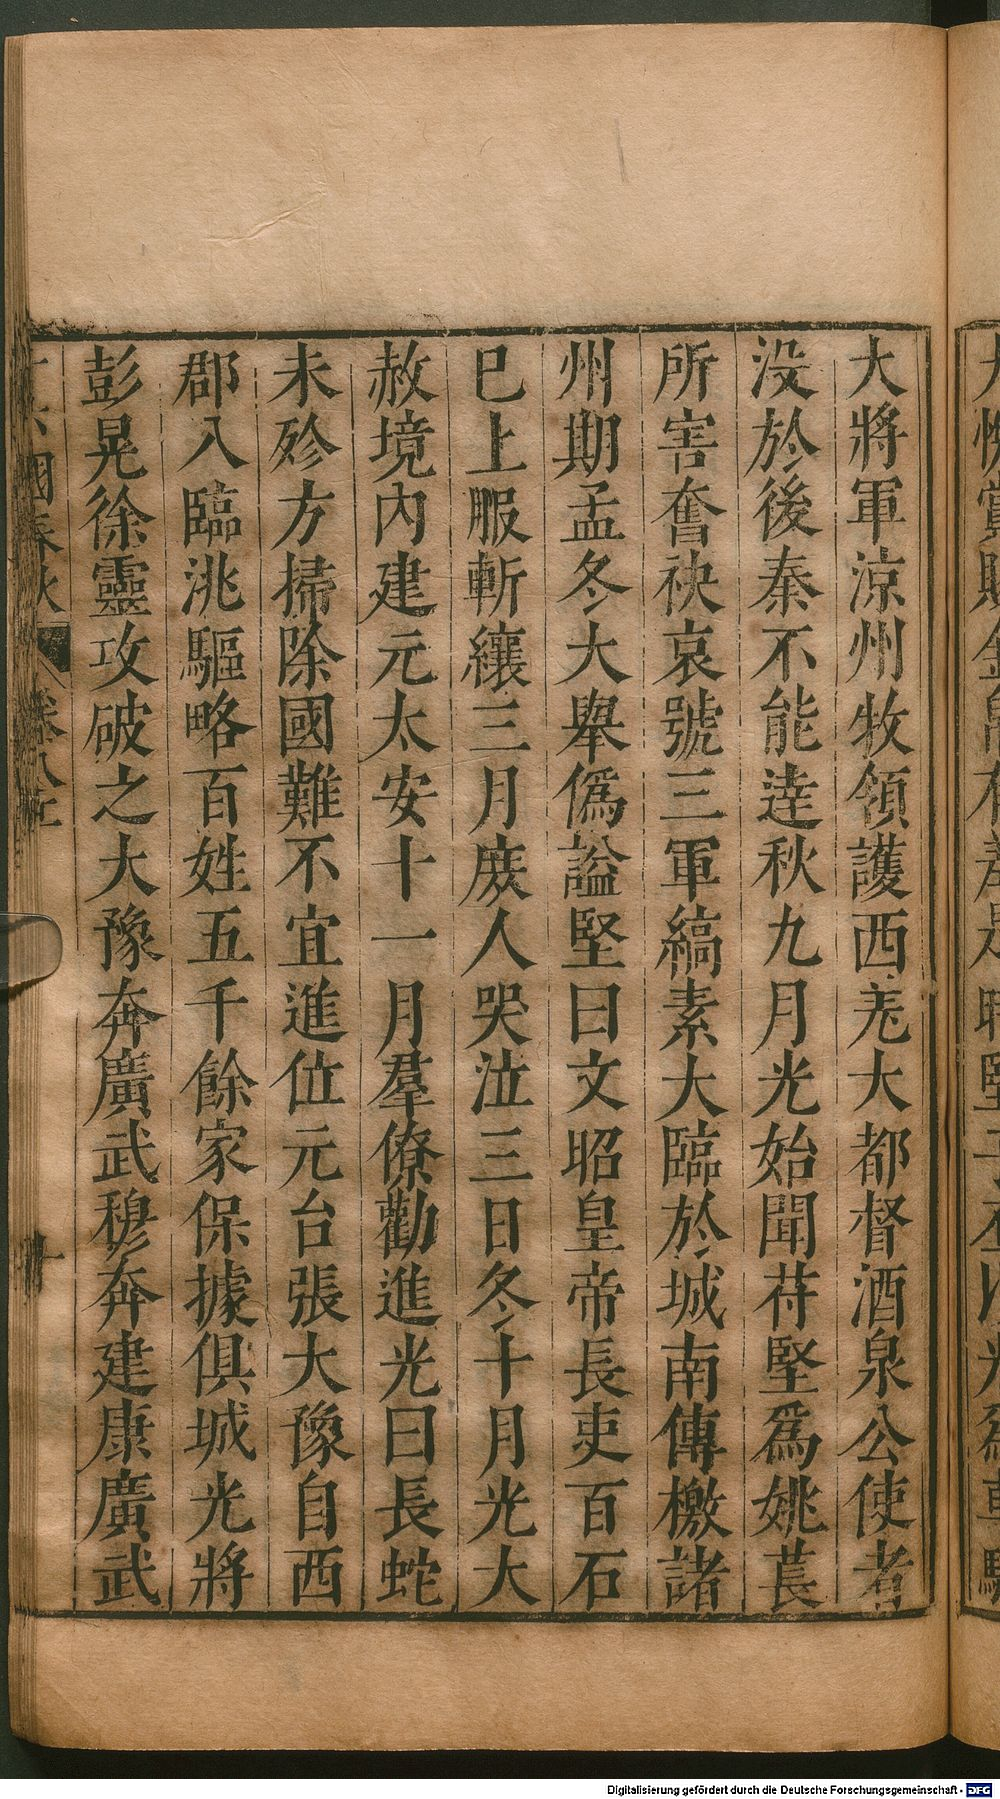 大將軍涼州牧領護西羌大都督酒泉公使者
没於後秦不能逹秋九月光始聞苻堅爲姚萇
所害奮袂哀號三軍縞素大臨於城南傳檄諸
州期孟冬大舉僞謚堅曰文昭皇帝長吏百石
巳上服斬縗三月庻人哭泣三日冬十月光大
赦境內建元太安十一月羣僚勸進光曰長蛇
未殄方掃除國難不宜進位元台張大豫自西
郡入臨洮驅略百姓五千餘家保據俱城光將
彭晃徐靈攻破之大豫奔廣武穆奔建康廣武
國春秋
Digitalisierung gefördert durch die Deutsche Forschungsgemeinschaft - DFG